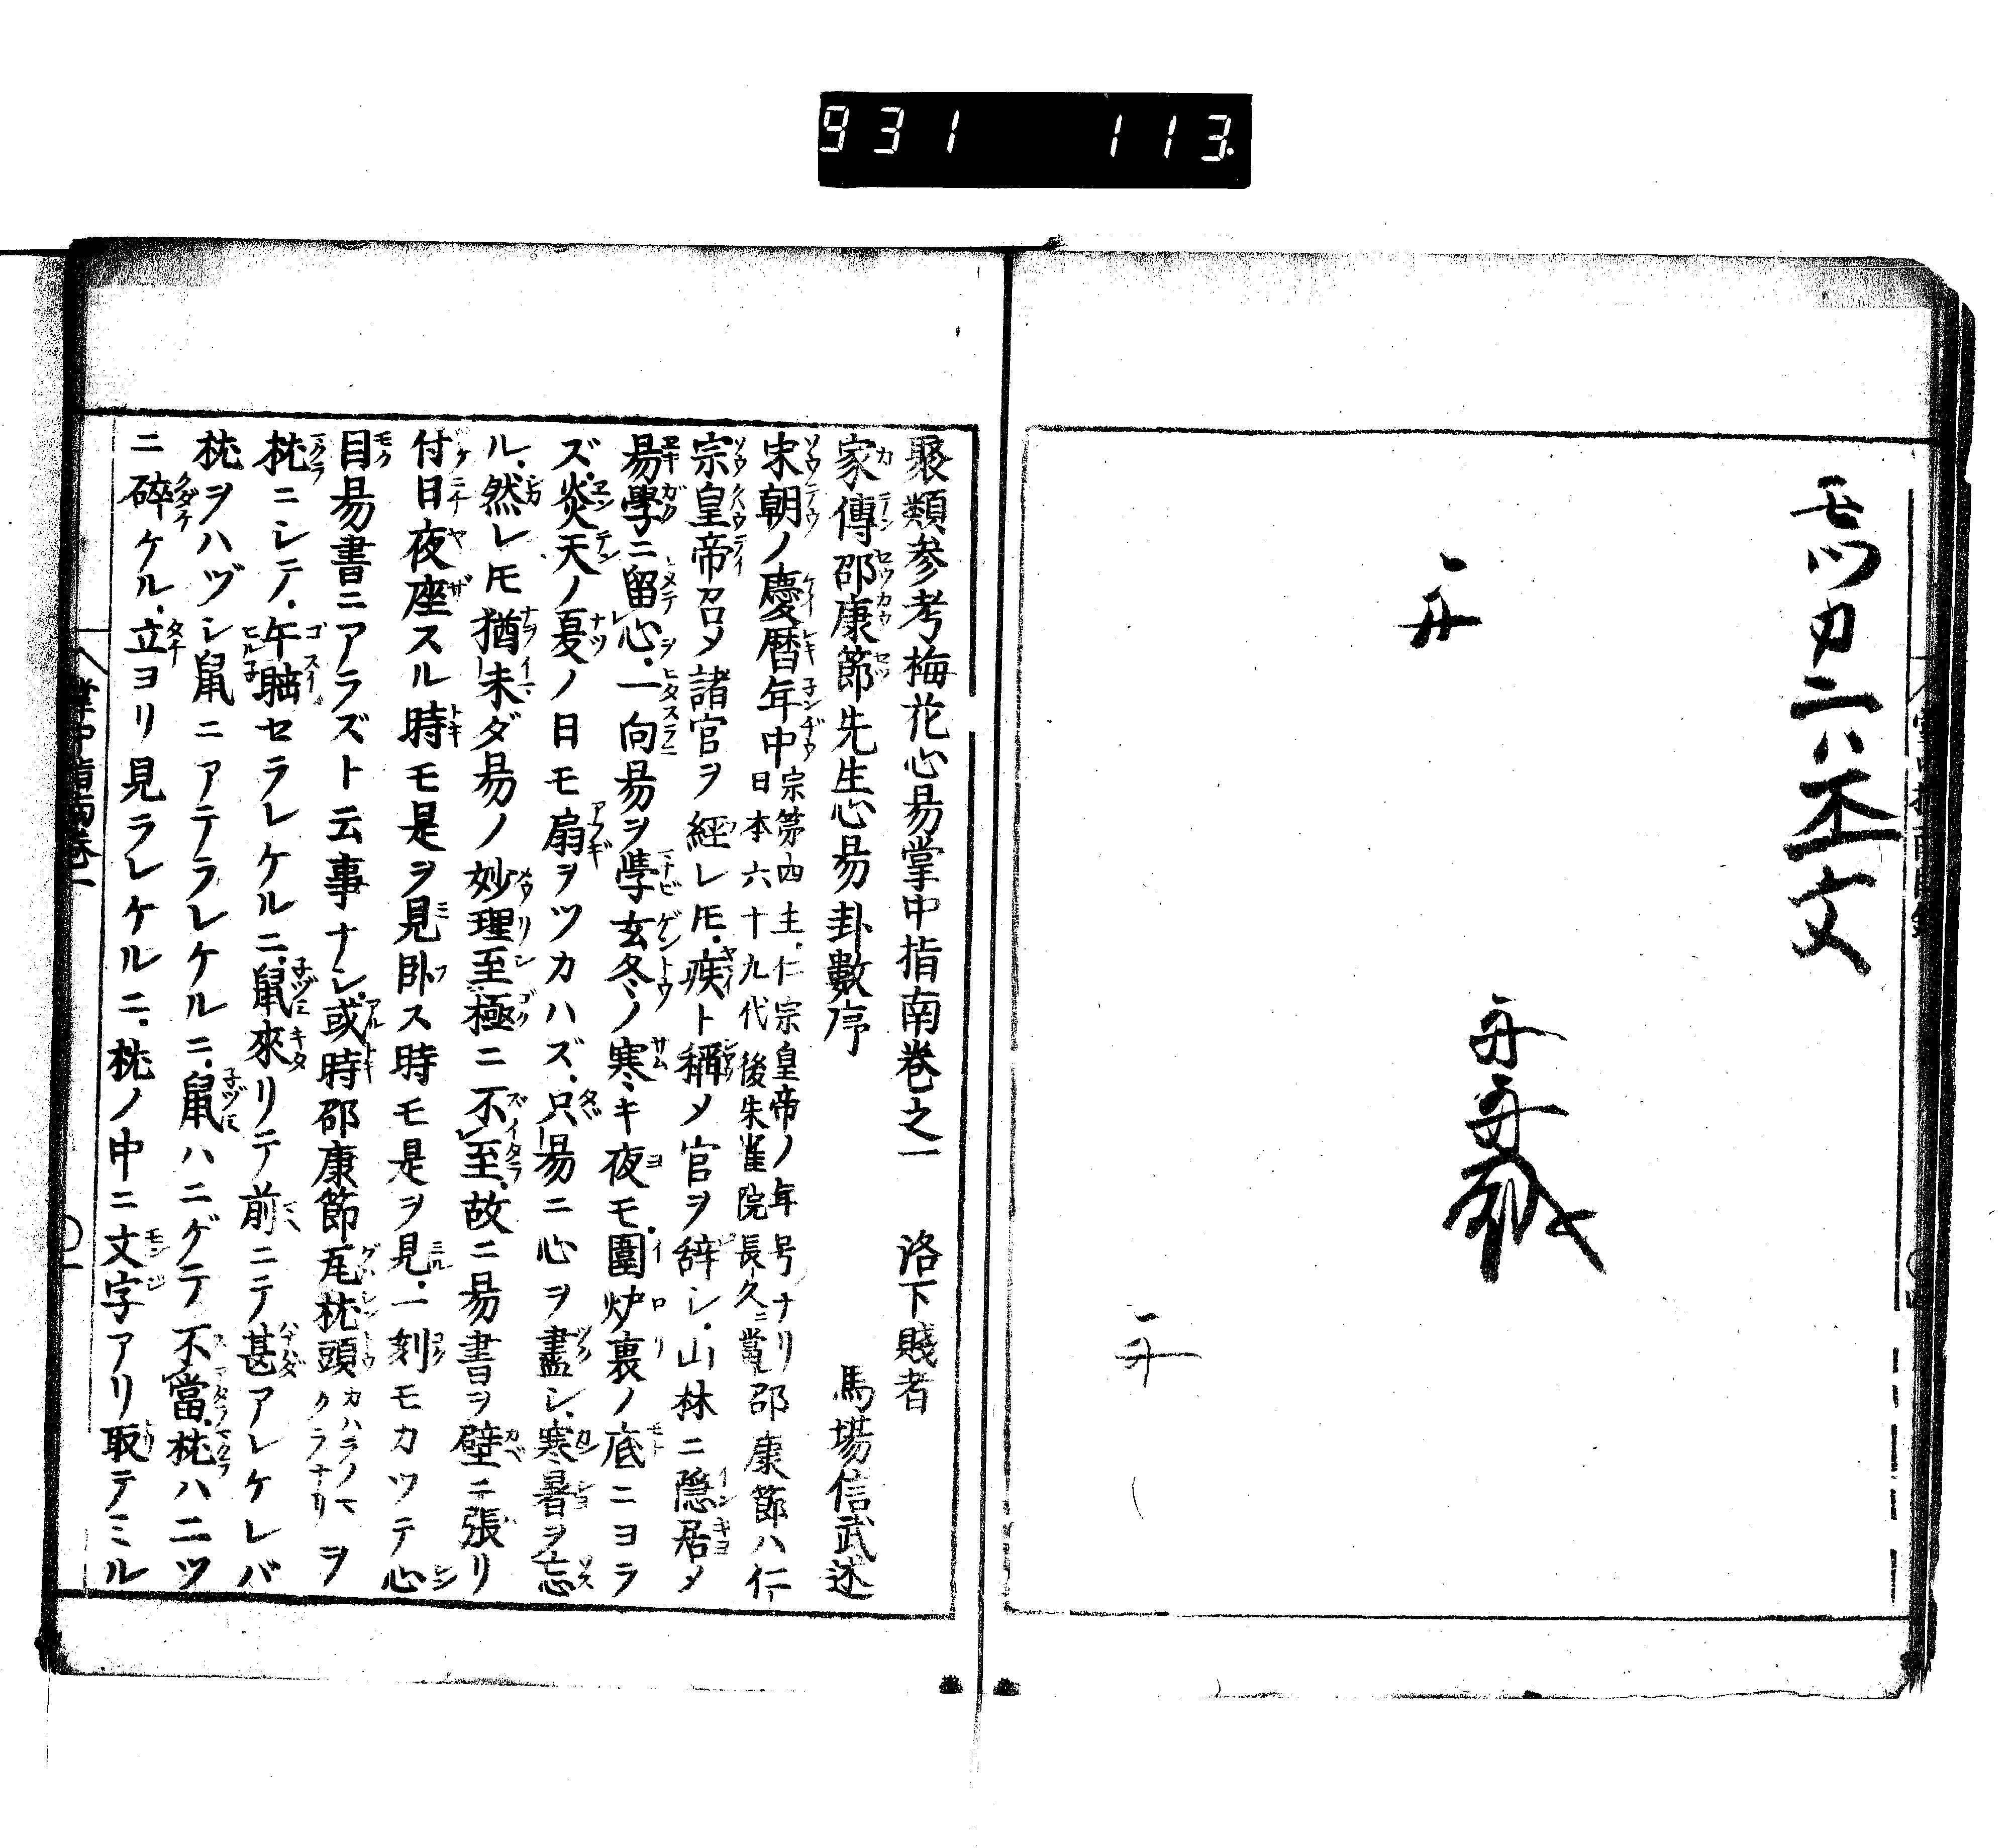 931 113.
聚類参考梅花心易掌中指南巻之一 洛下賤者
家傳邵康節先生心易卦數序 馬場信武述
宋朝ノ慶暦年中宗第四主仁宗皇帝ノ年号ナリ日本六十九代後朱雀院長久ニ當ル邵康節ハ仁
宗皇帝召メ諸官ヲ經レ𪜈疾ト稱メ官ヲ辞シ山林ニ隠居メ
易學ニ留心一向易ヲ學玄冬ノ寒キ夜モ圍炉裏ノ底ニヨラ
ズ炎天ノ夏ノ日モ扇ヲツカハズ只易ニ心ヲ盡シ寒暑ヲ忘
ル然レ𪜈猶未ダ易ノ妙理至極ニ不至故ニ易書ヲ壁ニ張リ
付日夜座スル時モ是ヲ見臥ス時モ是ヲ見一刻モカツテ心
目易書ニアラズト云事ナシ或時邵康節瓦枕頭カハラノマクラナリヲ
枕ニシテ午睡セラレケルニ鼠來リテ前ニテ甚アレケレバ
枕ヲハヅシ鼠ニアテラレケルニ鼠ハニゲテ不當枕ハ二ツ
ニ碎ケル立ヨリ見ラレケルニ枕ノ中ニ文字アリ取テミル
掌中指南巻一